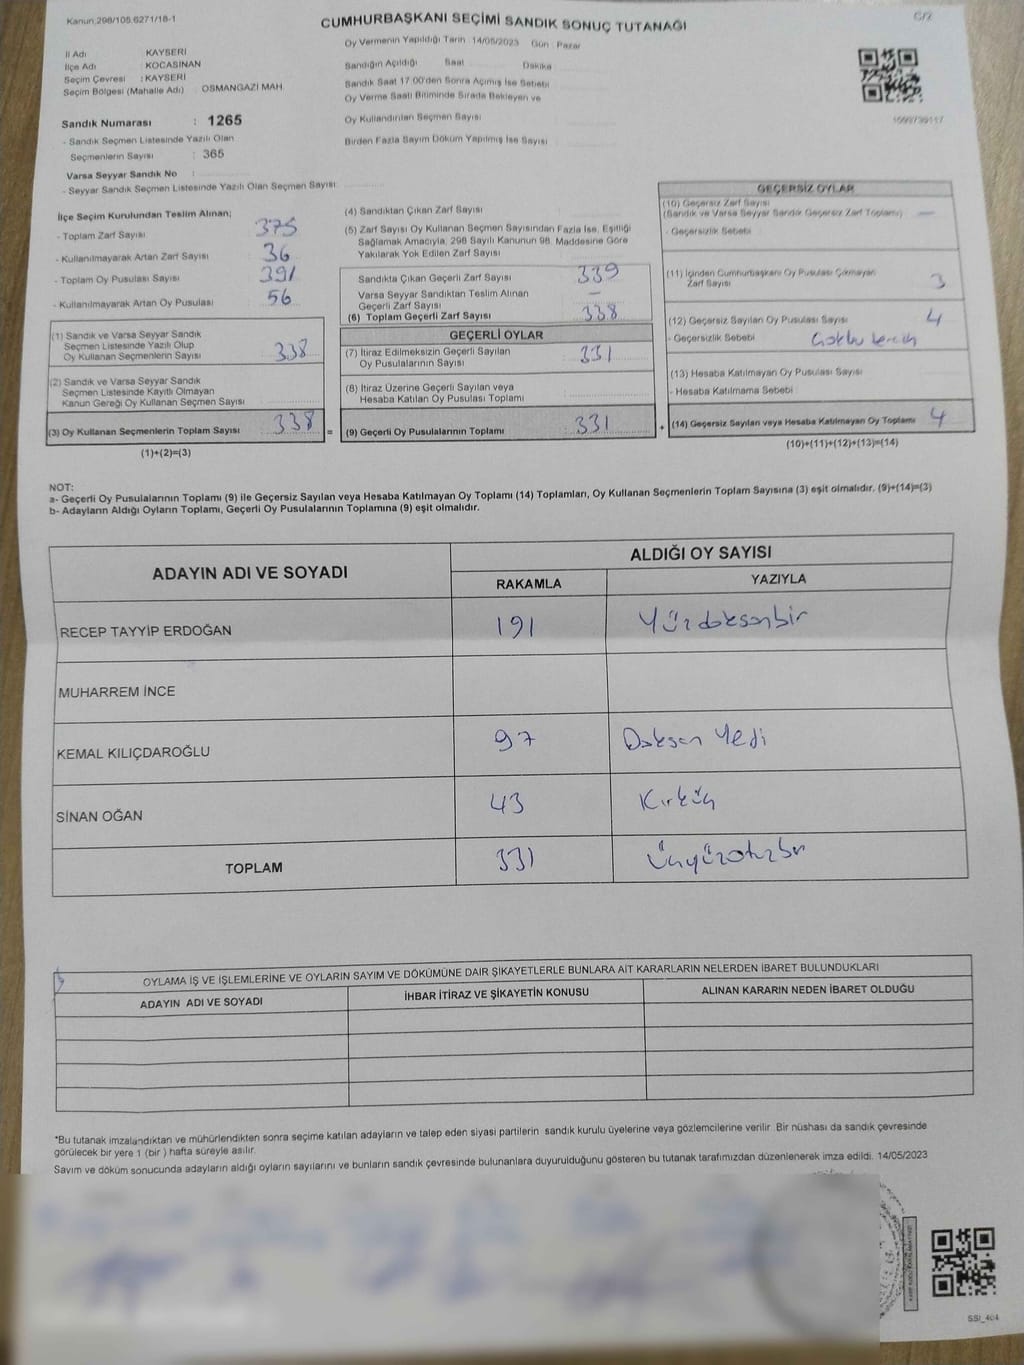 Kanun.298/105.6271/18-1
C/2
CUMHURBAŞKANI SEÇİMİ SANDIK SONUÇ TUTANAĞI
İl Adı : KAYSERİ
İlçe Adı : KOCASİNAN
Seçim Çevresi : KAYSERİ
Seçim Bölgesi (Mahalle Adı) : OSMANGAZİ MAH
Sandık Numarası : 1265
- Sandık Seçmen Listesinde Yazılı Olan
Seçmenlerin Sayısı : 365
Varsa Seyyar Sandık No :
- Seyyar Sandık Seçmen Listesinde Yazılı Olan Seçmen Sayısı:
Oy Vermenin Yapıldığı Tarih : 14/05/2023 Gün : Pazar
Sandığın Açıldığı Saat Dakika
Sandık Saat 17:00'den Sonra Açılmış İse Sebebi
Oy Verme Saati Bitiminde Sırada Bekleyen ve
Oy Kullandırılan Seçmen Sayısı
Birden Fazla Sayım Döküm Yapılmış İse Sayısı
İlçe Seçim Kurulundan Teslim Alınan;
- Toplam Zarf Sayısı : 375
- Kullanılmayarak Artan Zarf Sayısı : 36
- Toplam Oy Pusulası Sayısı : 391
- Kullanılmayarak Artan Oy Pusulası : 56
(1) Sandık ve Varsa Seyyar Sandık
Seçmen Listesinde Yazılı Olup
Oy Kullanan Seçmenlerin Sayısı 338
(2) Sandık ve Varsa Seyyar Sandık
Seçmen Listesinde Kayıtlı Olmayan
Kanun Gereği Oy Kullanan Seçmen Sayısı
(3) Oy Kullanan Seçmenlerin Toplam Sayısı 338 =
(1)+(2)=(3)
(4) Sandıktan Çıkan Zarf Sayısı
(5) Zarf Sayısı Oy Kullanan Seçmen Sayısından Fazla İse, Eşitliği
Sağlamak Amacıyla, 298 Sayılı Kanunun 98. Maddesine Göre
Yakılarak Yok Edilen Zarf Sayısı
Sandıkta Çıkan Geçerli Zarf Sayısı 339
Varsa Seyyar Sandıktan Teslim Alınan
Geçerli Zarf Sayısı –
(6) Toplam Geçerli Zarf Sayısı 338
GEÇERLİ OYLAR
(7) İtiraz Edilmeksizin Geçerli Sayılan
Oy Pusulalarının Sayısı 331
(8) İtiraz Üzerine Geçerli Sayılan veya
Hesaba Katılan Oy Pusulası Toplamı
(9) Geçerli Oy Pusulalarının Toplamı 331 +
GEÇERSİZ OYLAR
(10) Geçersiz Zarf Sayısı
(Sandık ve Varsa Seyyar Sandık Geçersiz Zarf Toplamı) –
- Geçersizlik Sebebi
(11) İçinden Cumhurbaşkanı Oy Pusulası Çıkmayan
Zarf Sayısı 3
(12) Geçersiz Sayılan Oy Pusulası Sayısı 4
- Geçersizlik Sebebi
(13) Hesaba Katılmayan Oy Pusulası Sayısı
- Hesaba Katılmama Sebebi
(14) Geçersiz Sayılan veya Hesaba Katılmayan Oy Toplamı 4
(10)+(11)+(12)+(13)=(14)
NOT:
a- Geçerli Oy Pusulalarının Toplamı (9) ile Geçersiz Sayılan veya Hesaba Katılmayan Oy Toplamı (14) Toplamları, Oy Kullanan Seçmenlerin Toplam Sayısına (3) eşit olmalıdır. (9)+(14)=(3)
b- Adayların Aldığı Oyların Toplamı, Geçerli Oy Pusulalarının Toplamına (9) eşit olmalıdır.
ADAYIN ADI VE SOYADI
ALDIĞI OY SAYISI
RAKAMLA YAZIYLA
RECEP TAYYİP ERDOĞAN 191 Yüzdoksanbir
MUHARREM İNCE
KEMAL KILIÇDAROĞLU 97 Doksan Yedi
SİNAN OĞAN 43 Kırküç
TOPLAM 331 Üçyüzotuzbir
OYLAMA İŞ VE İŞLEMLERİNE VE OYLARIN SAYIM VE DÖKÜMÜNE DAİR ŞİKAYETLERLE BUNLARA AİT KARARLARIN NELERDEN İBARET BULUNDUKLARI
ADAYIN ADI VE SOYADI İHBAR İTİRAZ VE ŞİKAYETİN KONUSU ALINAN KARARIN NEDEN İBARET OLDUĞU
*Bu tutanak imzalandıktan ve mühürlendikten sonra seçime katılan adayların ve talep eden siyasi partilerin sandık kurulu üyelerine veya gözlemcilerine verilir. Bir nüshası da sandık çevresinde
görülecek bir yere 1 (bir ) hafta süreyle asılır.
Sayım ve döküm sonucunda adayların aldığı oyların sayılarını ve bunların sandık çevresinde bulunanlara duyurulduğunu gösteren bu tutanak tarafımızdan düzenlenerek imza edildi. 14/05/2023
SSI_404